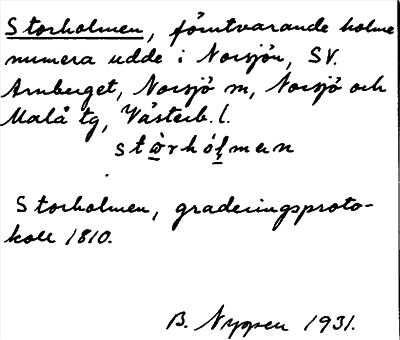 Storholmen, förutvarande holme
numera udde i Norsjön, SV.
Arnberget, Norsjö sn, Norsjö och
Malå tg, Västerb. l.
stòrhólmen
Storholmen, graderingsproto-
koll 1810.
B. Nygren 1931.